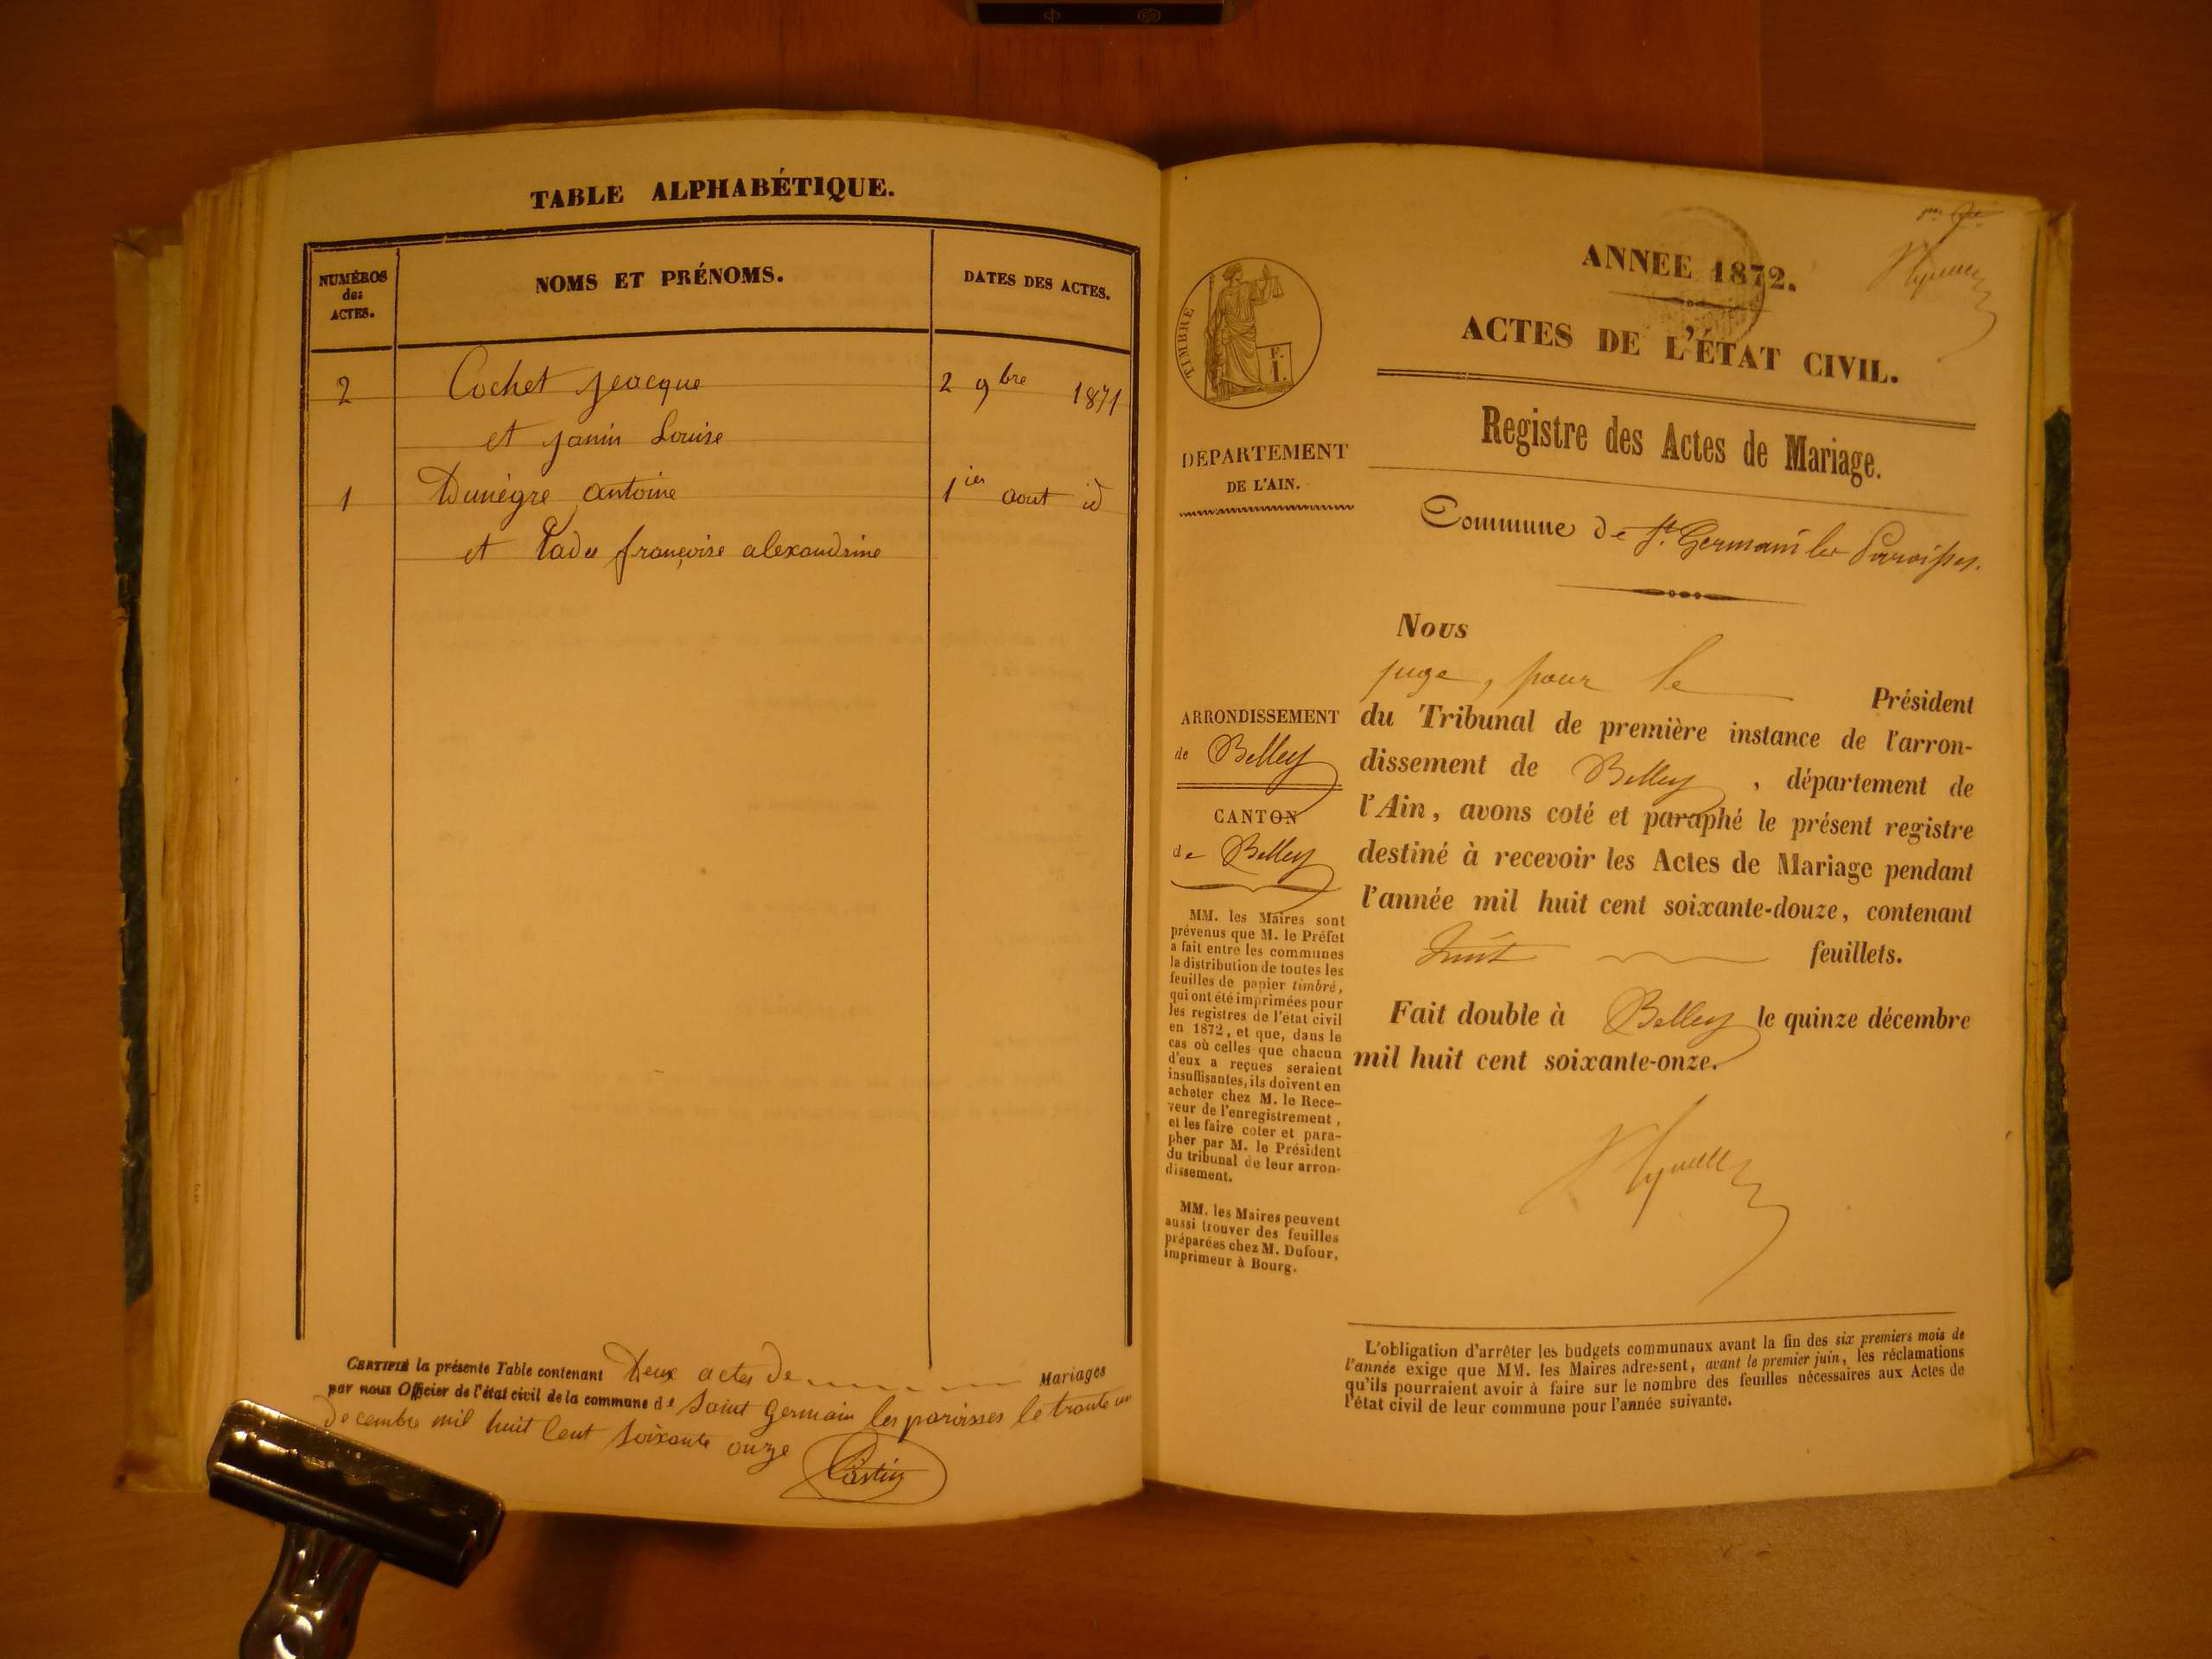 TABLE ALPHABÉTIQUE.
NUMÉROS
des
ACTES.
NOMS ET PRÉNOMS.
DATES DES ACTES.
2 Cochet Jeacque 2 9bre 1871
et Janin Louise
1 Dunègre antoine 1ier aout id
et françoise alexandrine
CERTIFIÉ la présente Table contenant Deux actes de Mariages
par nous Officier de l'état civil de la commune de Saint Germain les paroisses le trente un
Decembre mil huit Cent Soixante onze
ANNEE 1872.
ACTES DE L'ÉTAT CIVIL.
TIMBRE
F.
1.
Registre des Actes de Mariage.
DEPARTEMENT
DE L'AIN.
Commune de St. Germain les Paroisses.
Nous
juge, pour le Président
ARRONDISSEMENT
de Belley
CANTON
de Belley
du Tribunal de première instance de l'arron-
dissement de Belley, département de
l'Ain, avons coté et paraphé le présent registre
destiné à recevoir les Actes de Mariage pendant
l'année mil huit cent soixante-douze, contenant
huit feuillets.
Fait double à Belley le quinze décembre
mil huit cent soixante-onze.
MM. les Maires sont
prévenus que M. le Préfet
a fait entre les communes
la distribution de toutes les
feuilles de papier timbré,
qui ont été imprimées pour
les registres de l'état civil
en 1872, et que, dans le
cas où celles que chacun
d'eux a reçues seraient
insuffisantes, ils doivent en
acheter chez M. le Rece-
veur de l'enregistrement,
et les faire coter et para-
pher par M. le Président
du tribunal de leur arron-
dissement.
MM. les Maires peuvent
aussi trouver des feuilles
préparées chez M. Dufour,
imprimeur à Bourg.
L'obligation d'arrêter les budgets communaux avant la fin des six premiers mois de
l'année exige que MM. les Maires adressent, avant le premier juin, les réclamations
qu'ils pourraient avoir à faire sur le nombre des feuilles nécessaires aux Actes de
l'état civil de leur commune pour l'année suivante.